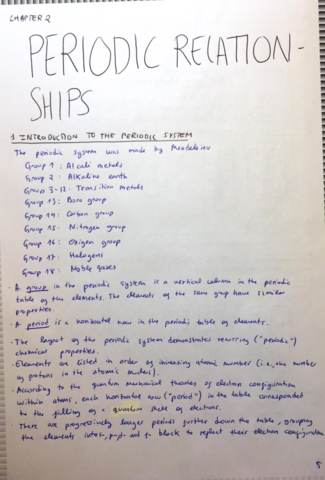 CHAPTER 2
PERIODIC RELATION-
SHIPS
1 INTRODUCTION TO THE PERIODIC SYSTEM
The periodic system was made by Mendeleiev
Group 1: Alcali metals
Group 2: Alkaline earth
Group 3-12: Transition metals
Group 13: Boro group
Group 14: Carbon group
Group 15: Nitrogen group
Group 16: Oxigen group
Group 17: Halogens
Group 18: Noble gases
· A group in the periodic system is a vertical column in the periodic
table of the elements. The elements of the same group have similar
properties.
· A period is a horizontal row in the periodic table of elements.
· The layout of the periodic system demonstrates recurring ("periodic")
chemical properties.
· Elements are listed in order of increasing atomic number (i.e., the number
of protons in the atomic nucleus).
· According to the quantum mechanical theories of electron configuration
within atoms, each horizontal row ("period") in the table corresponded
to the filling of a quantum shell of electrons.
· There are progressively longer periods further down the table, grouping
the elements into s-, p-, d- and f- blocks to reflect their electron configuration